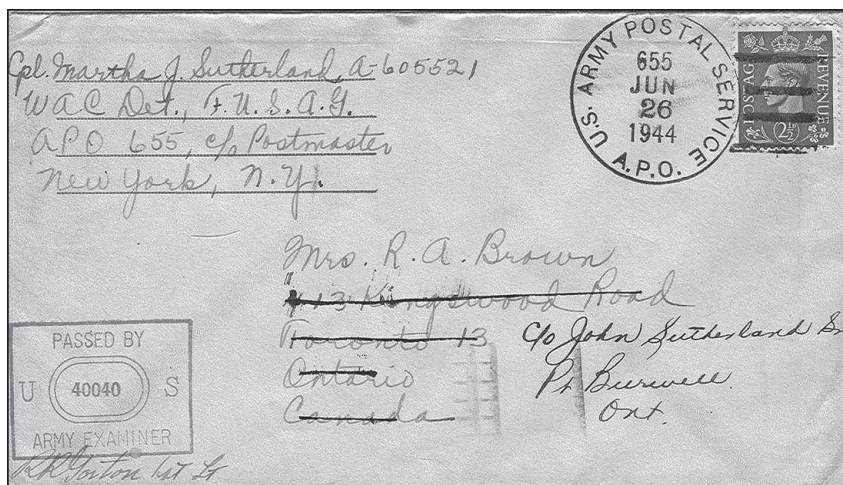 Cpl. Martha J. Sutherland, A-605521
WAC Det., F.U.S.A.G.
APO 655, c/o Postmaster
New York, N.Y.
U.S. ARMY POSTAL SERVICE
655
JUN
26
1944
A.P.O.
REVENUE
2½
Mrs. R. A. Brown
113 Kingswood Road
Toronto 13
Ontario
Canada
c/o John Sutherland Sr
Pt Burwell
Ont.
PASSED BY
U 40040 S
ARMY EXAMINER
1st Lt